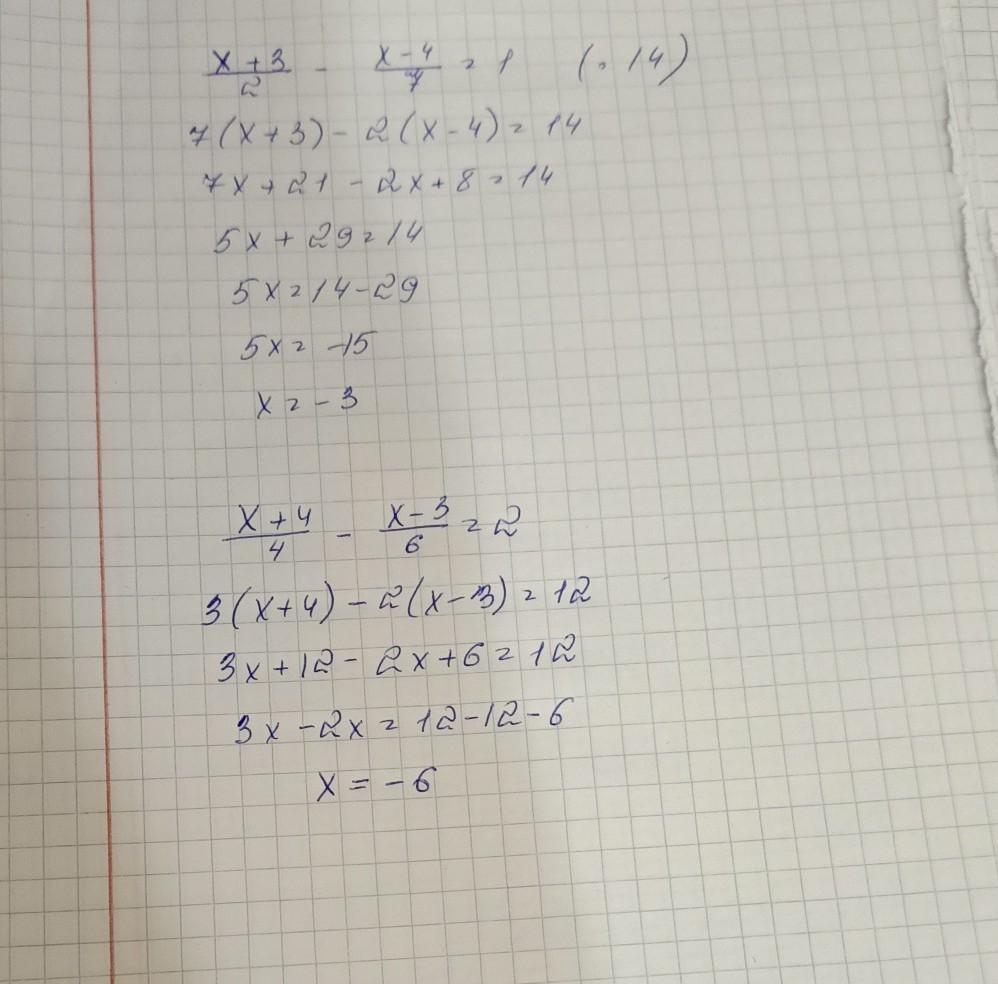 (x+3)/2 - (x-4)/7 = 1 (· 14)
7(x+3) - 2(x-4) = 14
7x + 21 - 2x + 8 = 14
5x + 29 = 14
5x = 14 - 29
5x = -15
x = -3
(x+4)/4 - (x-3)/6 = 2
3(x+4) - 2(x-3) = 12
3x + 12 - 2x + 6 = 12
3x - 2x = 12 - 12 - 6
x = -6